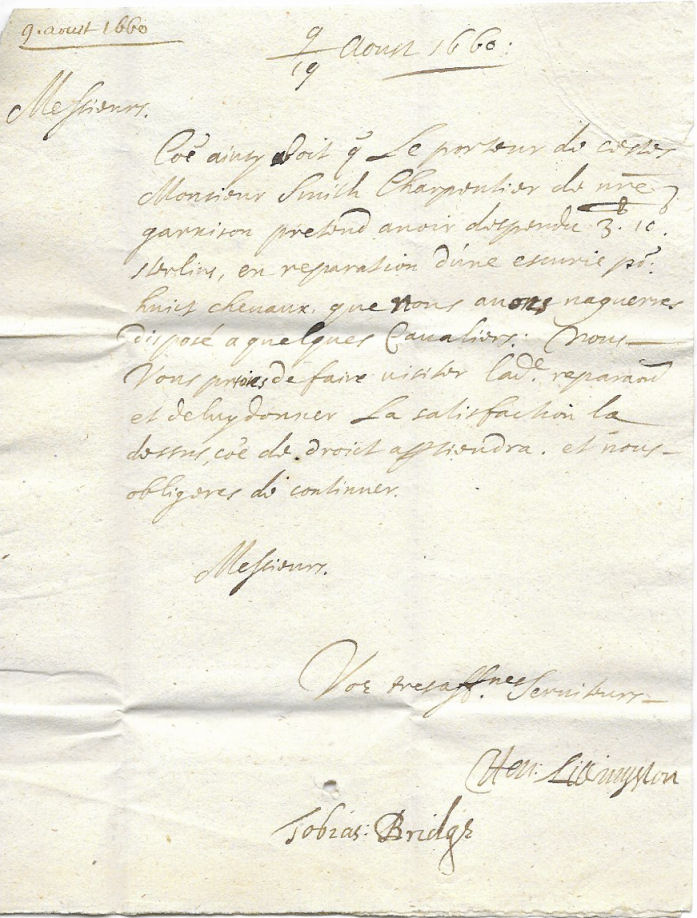 9. aoust 1660
9
19 Aoust 1660:
Messieurs.
Coē ainsy soit q̄ Le porteur de cestes
Monsieur Smith Charpentier de nrē
garnison pretend avoir despendu 3. 10.
sterlins, en reparation d'une escurie po:
huict chevaux, que nous avons nagueres
disposé a quelques Cavaliers: Nous
Vous prions de faire visiter lade. reparaon
et de luy donner La satisfaction la
dessus, coē de droict apptiendra. et nous
obligeres de continuer.
Messieurs.
Voz tresaffnes. Serviteurs
Hen: Livingston
Tobias: Bridge